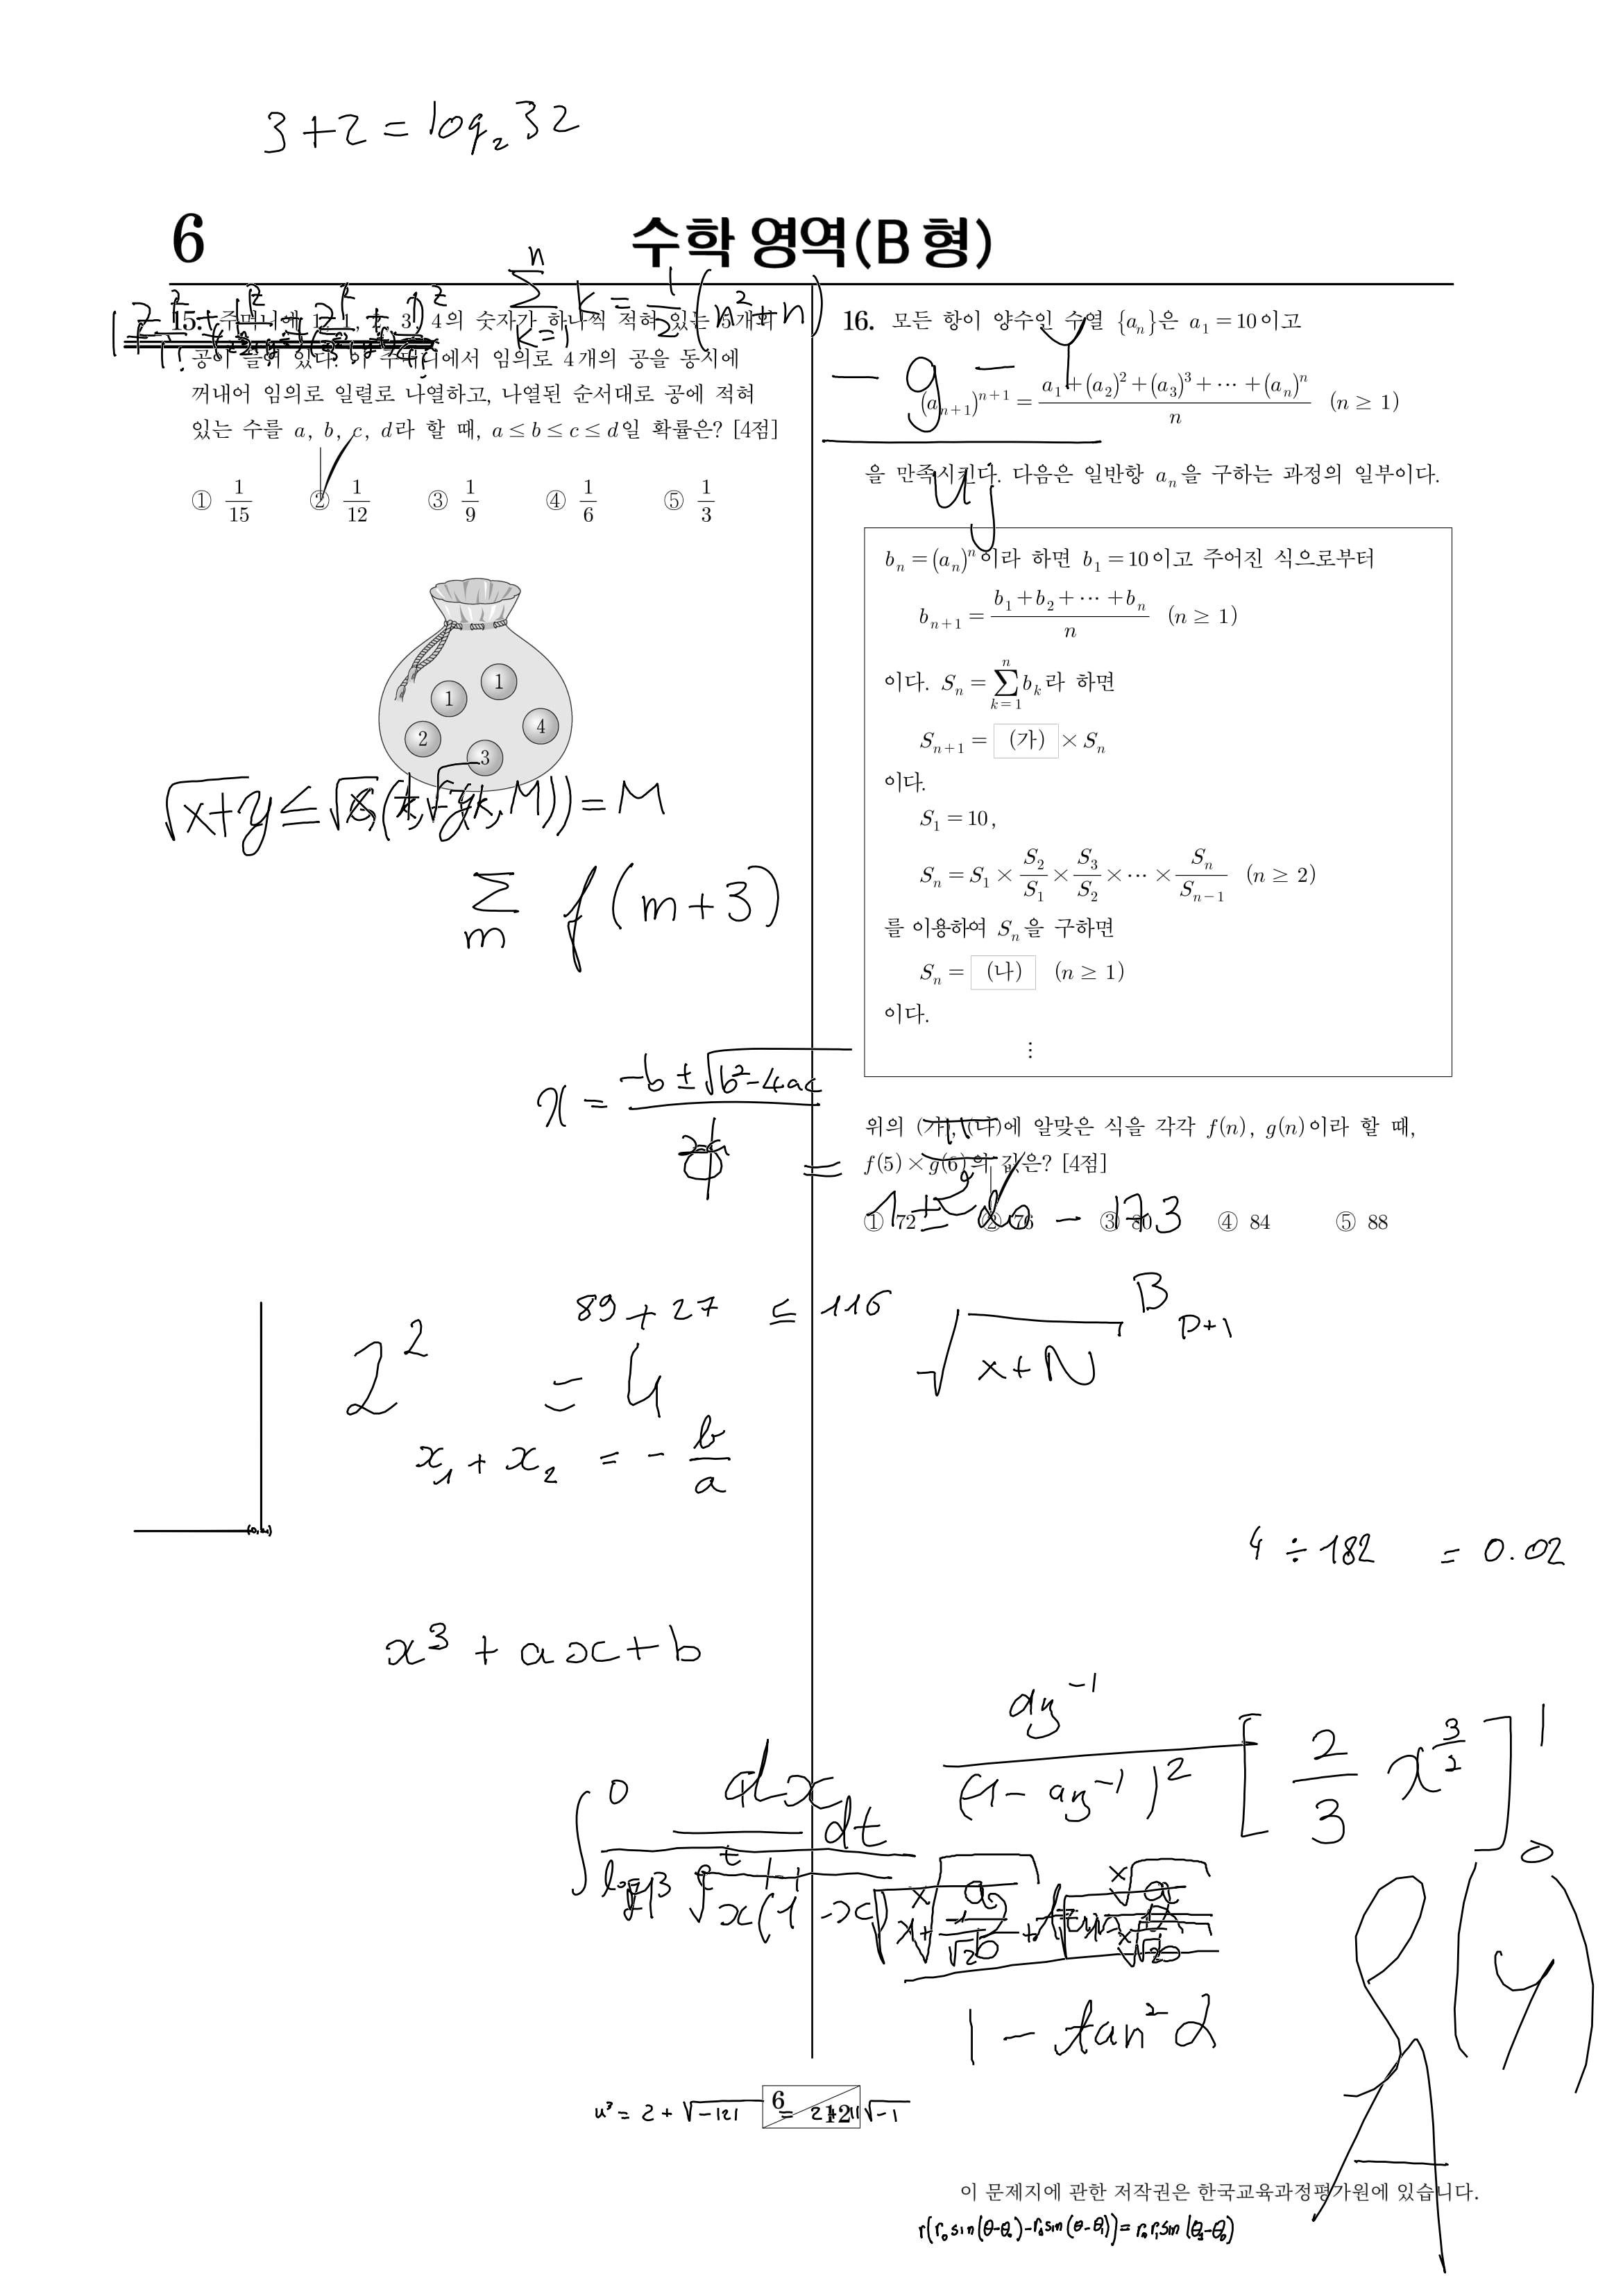 3+2=log₂32
6
수학 영역(B형)
15. 주머니에 1, 1, 2, 3, 4의 숫자가 하나씩 적혀 있는 5개의
공이 들어 있다. 이 주머니에서 임의로 4개의 공을 동시에
꺼내어 임의로 일렬로 나열하고, 나열된 순서대로 공에 적혀
있는 수를 a, b, c, d라 할 때, a ≤ b ≤ c ≤ d일 확률은? [4점]
① 1/15 ② 1/12 ③ 1/9 ④ 1/6 ⑤ 1/3
1
1
2
4
3
∑_{k=1}^{n} k = 1/2 (n²+n)
∑_m f(m+3)
x = (-b ± √(b²-4ac))
89+27 ≤ 116
2² = 4
x₁ + x₂ = - b/a
x³ + ax + b
16. 모든 항이 양수인 수열 {aₙ}은 a₁ = 10이고
(aₙ₊₁)ⁿ⁺¹ = (a₁+(a₂)²+(a₃)³+⋯+(aₙ)ⁿ)/n (n ≥ 1)
을 만족시킨다. 다음은 일반항 aₙ을 구하는 과정의 일부이다.
bₙ = (aₙ)ⁿ이라 하면 b₁ = 10이고 주어진 식으로부터
bₙ₊₁ = (b₁+b₂+⋯+bₙ)/n (n ≥ 1)
이다. Sₙ = ∑_{k=1}^{n} bₖ라 하면
Sₙ₊₁ = (가) × Sₙ
이다.
S₁ = 10,
Sₙ = S₁ × S₂/S₁ × S₃/S₂ × ⋯ × Sₙ/Sₙ₋₁ (n ≥ 2)
를 이용하여 Sₙ을 구하면
Sₙ = (나) (n ≥ 1)
이다.
⋮
위의 (가), (나)에 알맞은 식을 각각 f(n), g(n)이라 할 때,
f(5)×g(6)의 값은? [4점]
① 72 ② 76 ③ 80 ④ 84 ⑤ 88
√(x+N)
B
p+1
4 ÷ 182 = 0.02
az⁻¹/(1-az⁻¹)²
[2/3 x^{3/2}]₀¹
1 - tan²α
(y)
A
6
12
u³ = 2+√-121 = 2+11√-1
이 문제지에 관한 저작권은 한국교육과정평가원에 있습니다.